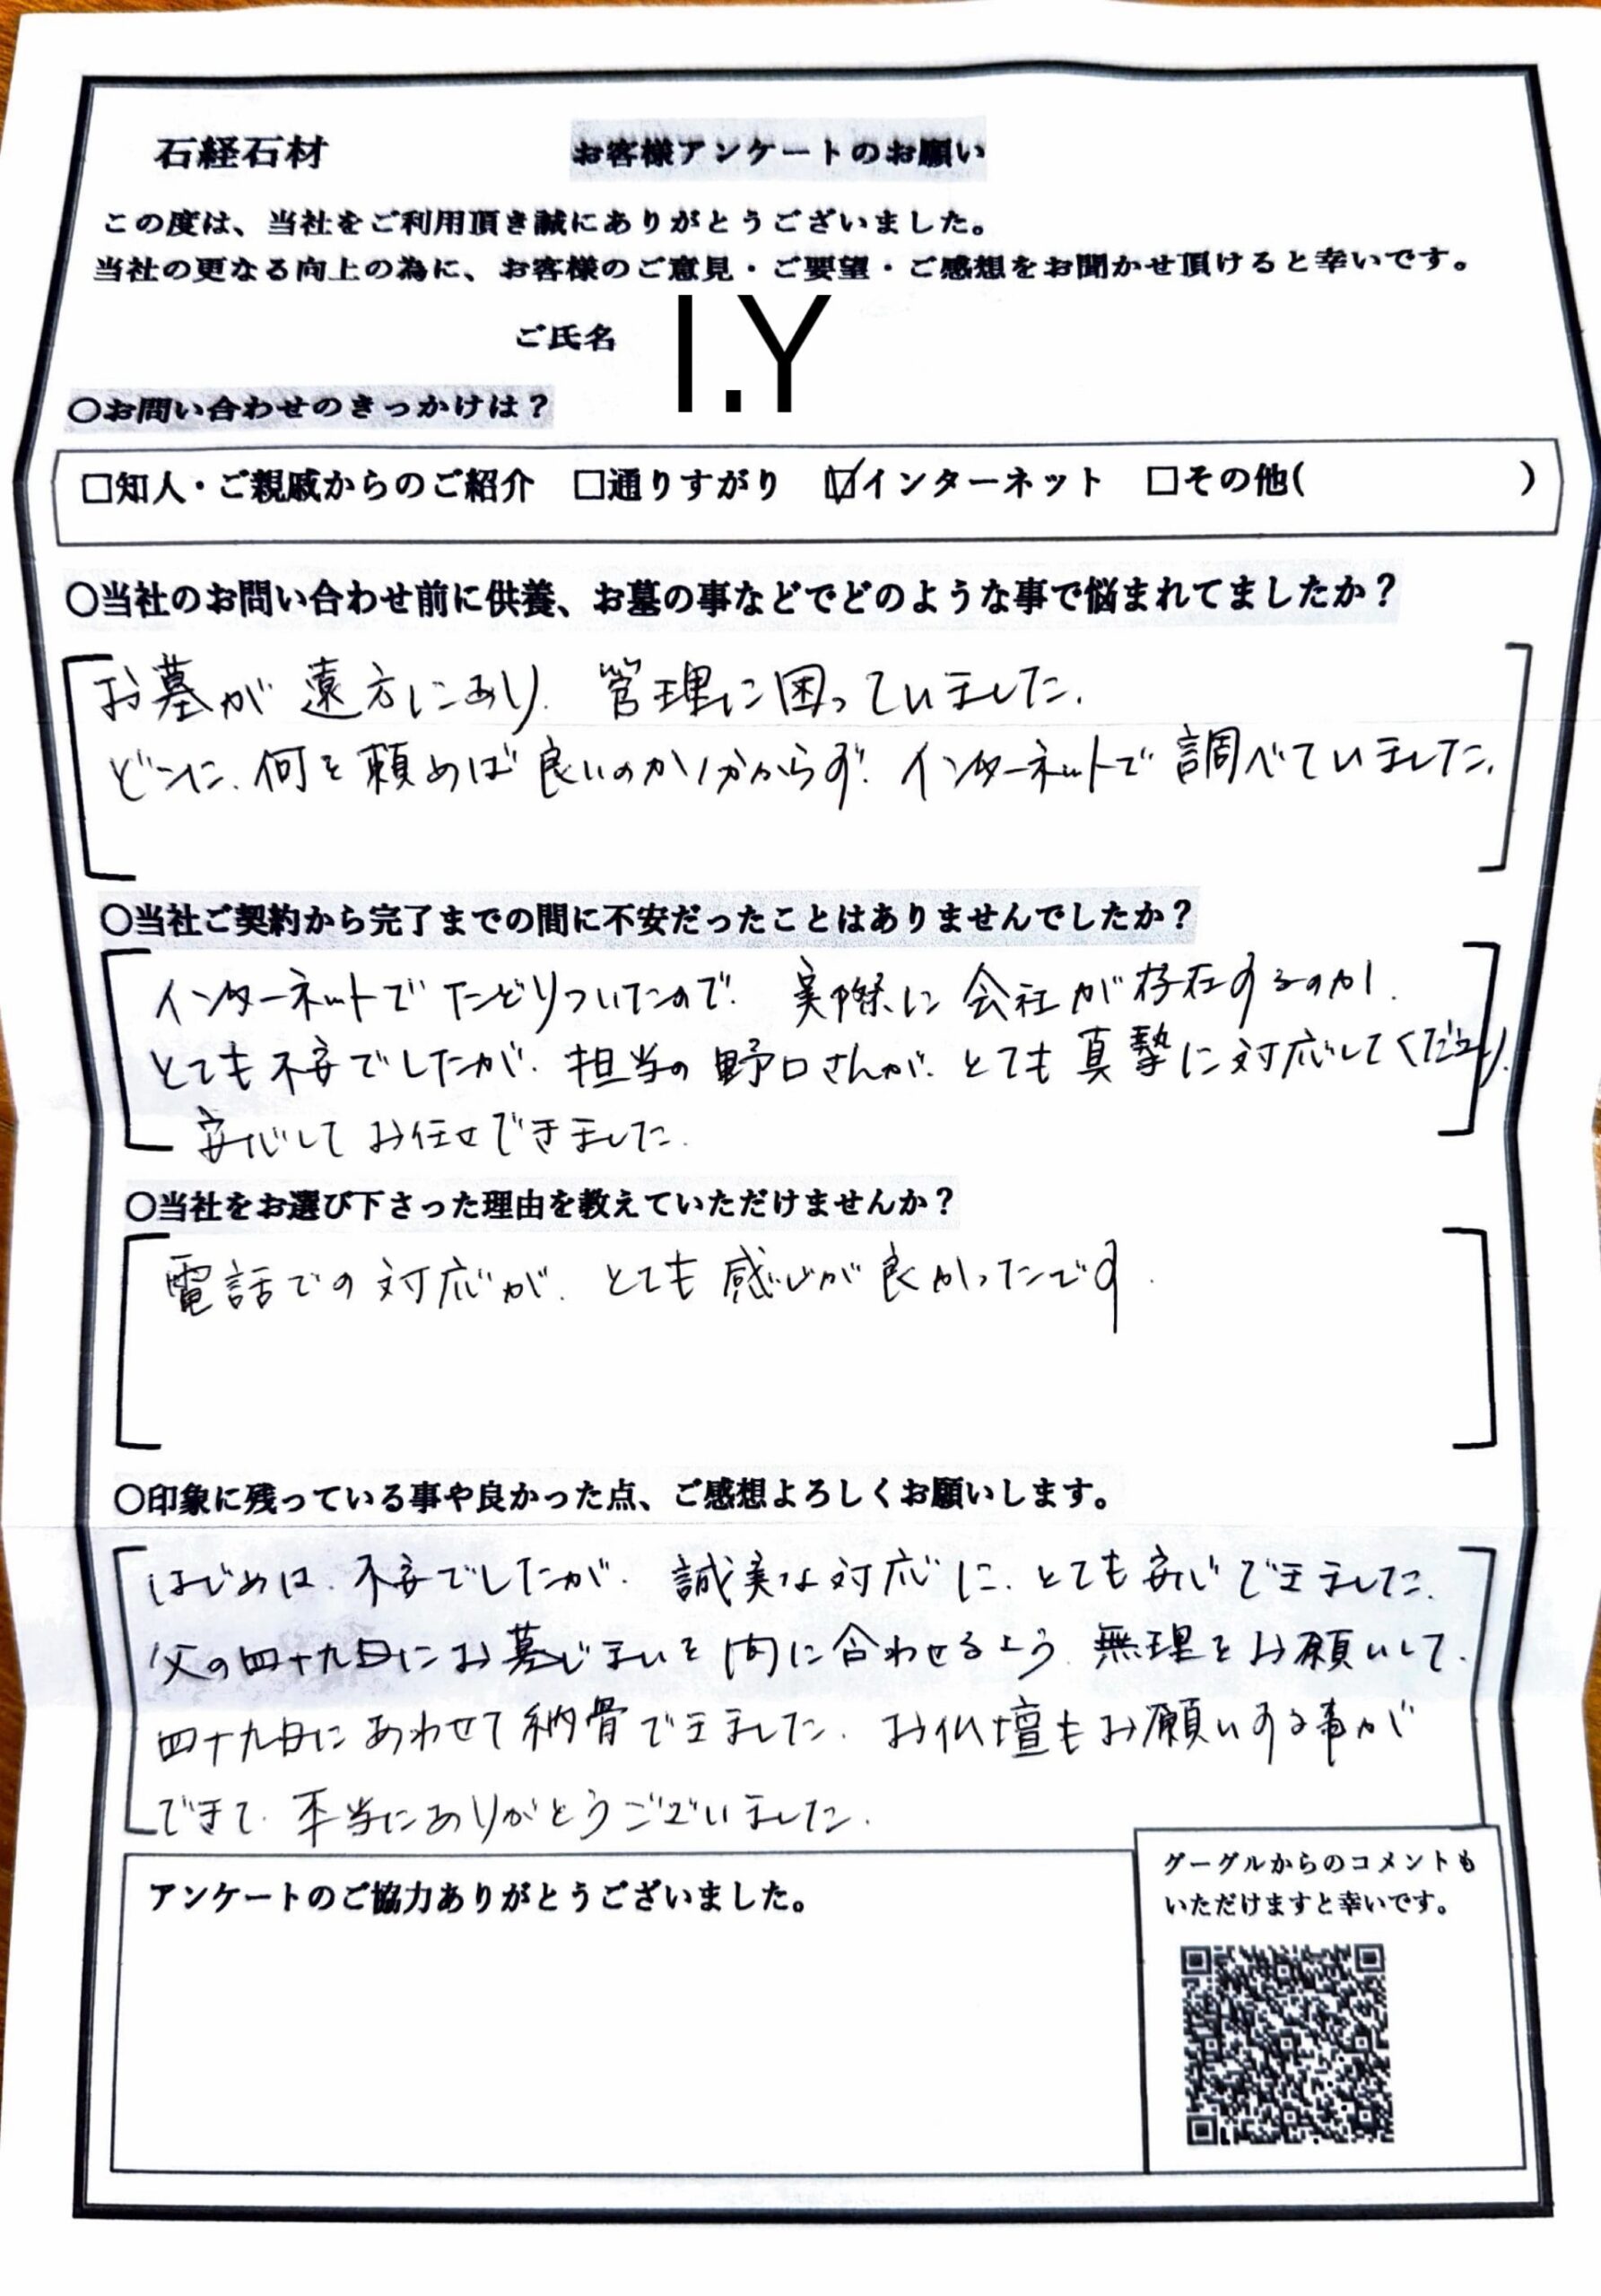 石経石材 お客様アンケートのお願い
この度は、当社をご利用頂き誠にありがとうございました。
当社の更なる向上の為に、お客様のご意見・ご要望・ご感想をお聞かせ頂けると幸いです。
ご氏名 I.Y
〇お問い合わせのきっかけは？
□知人・ご親戚からのご紹介 □通りすがり ☑インターネット □その他( )
〇当社のお問い合わせ前に供養、お墓の事などでどのような事で悩まれてましたか？
お墓が遠方にあり、管理に困っていました。
どこに、何を頼めば良いのか分からず、インターネットで調べていました。
〇当社ご契約から完了までの間に不安だったことはありませんでしたか？
インターネットでたどりついたので、実際に会社が存在するのか、
とても不安でしたが、担当の野口さんが、とても真摯に対応してくださり、
安心してお任せできました。
〇当社をお選び下さった理由を教えていただけませんか？
電話での対応が、とても感じが良かったです。
〇印象に残っている事や良かった点、ご感想よろしくお願いします。
はじめは、不安でしたが、誠実な対応に、とても安心できました。
父の四十九日にお墓じまいを間に合わせるよう、無理をお願いして、
四十九日にあわせて納骨できました。お仏壇もお願いする事が
できて、本当にありがとうございました。
アンケートのご協力ありがとうございました。
グーグルからのコメントも
いただけますと幸いです。